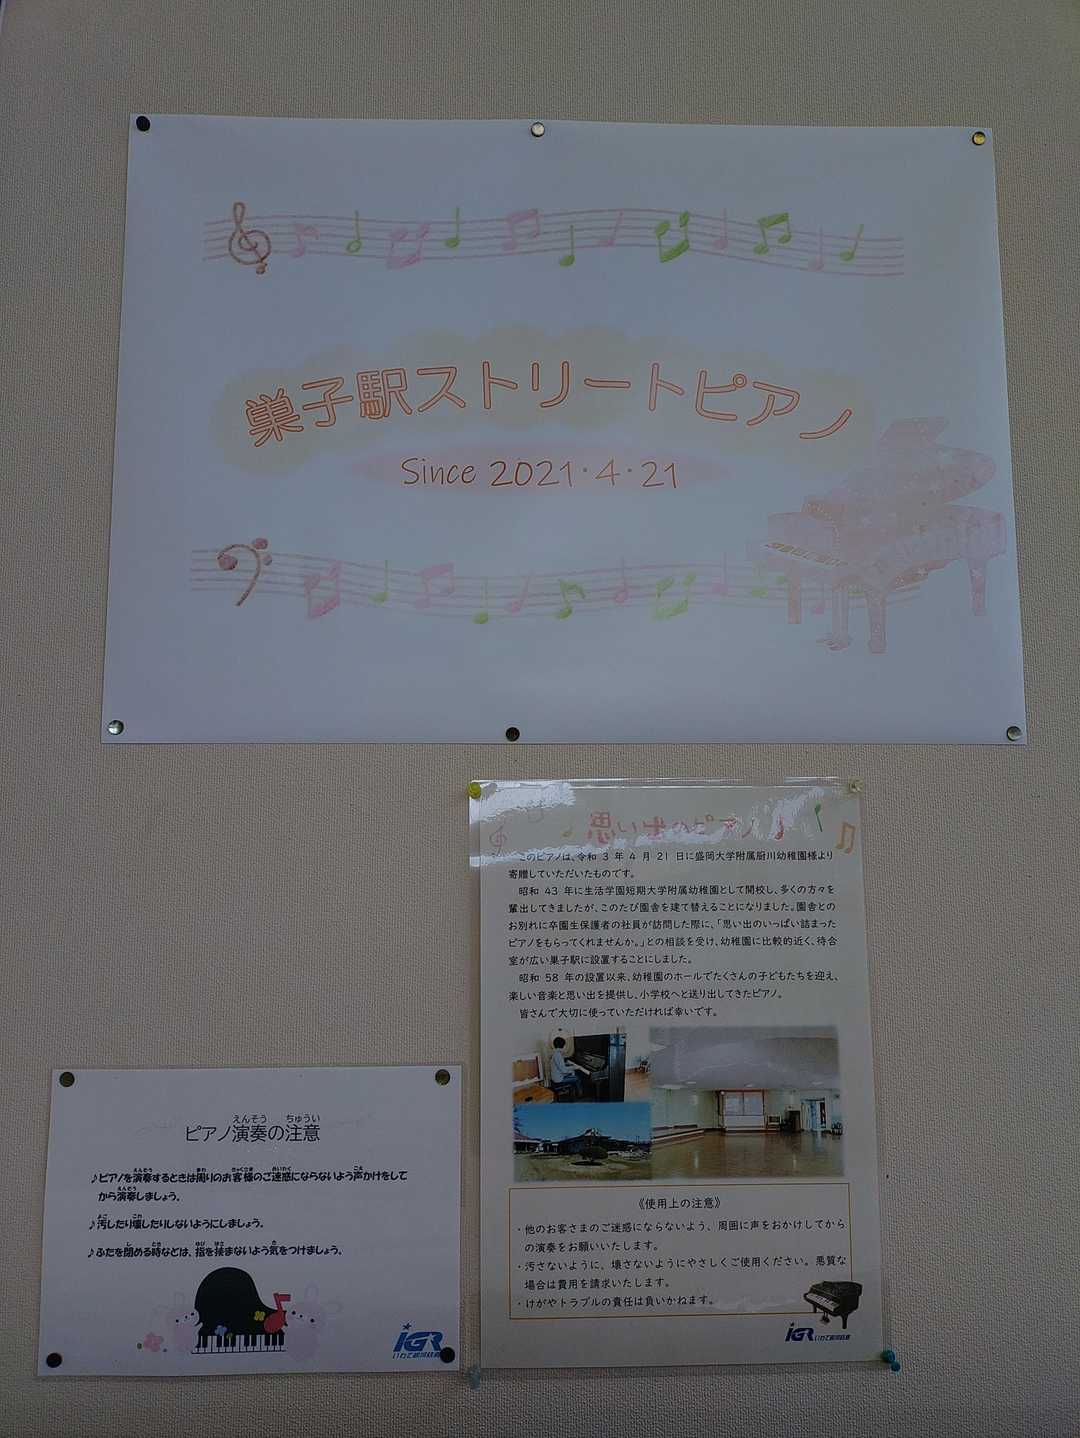 巣子駅ストリートピアノ
Since 2021・4・21
思い出のピアノ
このピアノは、令和 3 年 4 月 21 日に盛岡大学附属厨川幼稚園様より
寄贈していただいたものです。
昭和 43 年に生活学園短期大学附属幼稚園として開校し、多くの方々を
輩出してきましたが、このたび園舎を建て替えることになりました。園舎との
お別れに卒園生保護者の社員が訪問した際に、「思い出のいっぱい詰まった
ピアノをもらってくれませんか。」との相談を受け、幼稚園に比較的近く、待合
室が広い巣子駅に設置することにしました。
昭和 58 年の設置以来、幼稚園のホールでたくさんの子どもたちを迎え、
楽しい音楽と思い出を提供し、小学校へと送り出してきたピアノ。
皆さんで大切に使っていただければ幸いです。
《使用上の注意》
・他のお客さまのご迷惑にならないよう、周囲に声をおかけしてから
の演奏をお願いいたします。
・汚さないように、壊さないようにやさしくご使用ください。悪質な
場合は費用を請求いたします。
・けがやトラブルの責任は負いかねます。
IGRいわて銀河鉄道
えんそう ちゅうい
ピアノ演奏の注意
えんそう まわ きゃくさま めいわく こえ
♪ピアノを演奏するときは周りのお客様のご迷惑にならないよう声かけをして
えんそう
から演奏しましょう。
よご こわ
♪汚したり壊したりしないようにしましょう。
し とき ゆび はさ き
♪ふたを閉める時などは、指を挟まないよう気をつけましょう。
IGR
いわて銀河鉄道